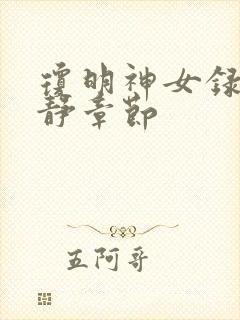 瓊明神女録
靜章節
五阿哥